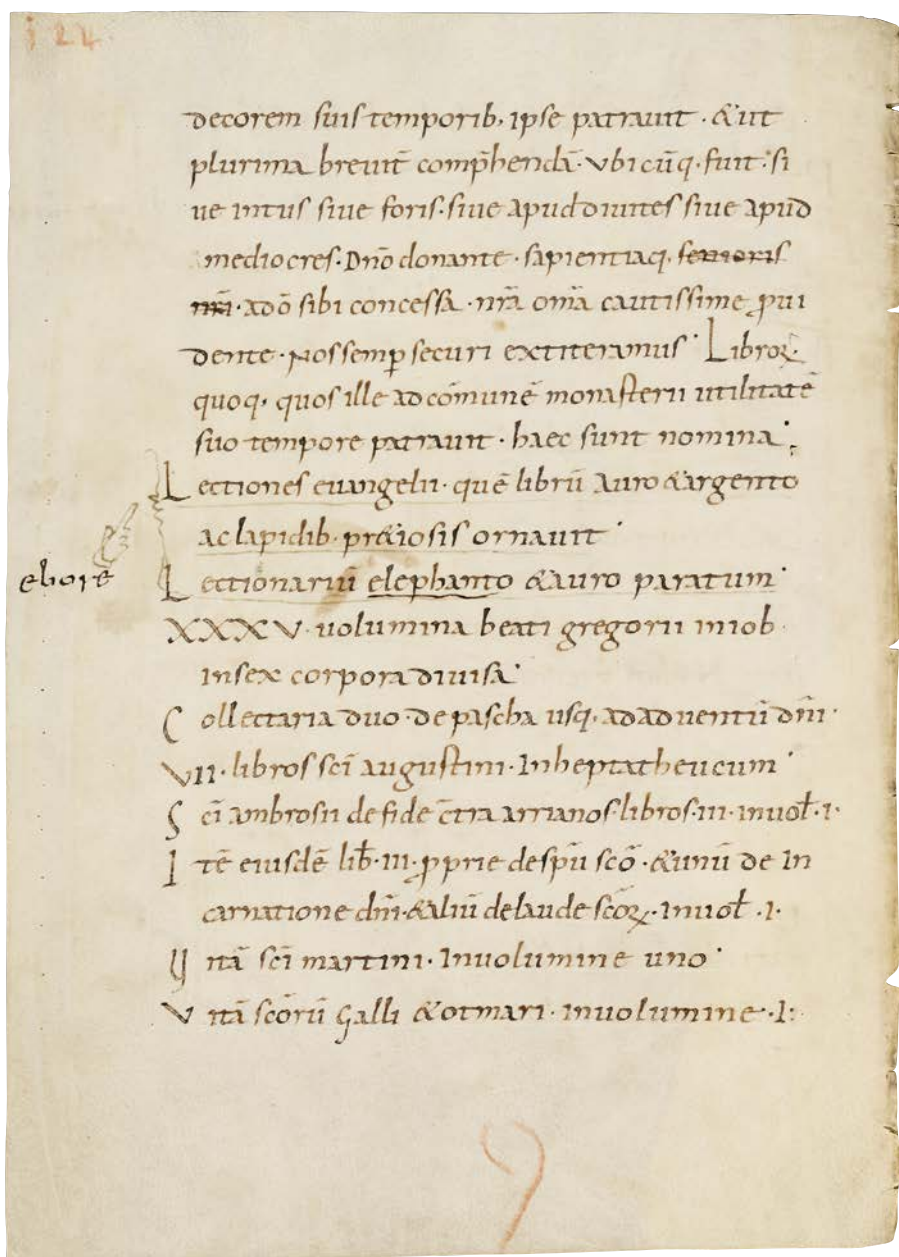 124
decorem suis temporib; ipse patrauit · & ut
plurima breuit̄ comp̄hendā · Vbicūq; fuit · si
ue intus siue foris · siue apud diuites siue apud
mediocres · Dn̄o donante · sapientiaq; senioris
nr̄i · a dō sibi concessa · nr̄a om̄ia cautissime ꝓui
dente · nos semꝑ securi extiteramus · Libroꝝ
quoq; quos ille ad cōmunē monasterii utilitatē
suo tempore patrauit · haec sunt nomina ·
Lectiones euangelii · quē librū auro & argento
ac lapidib; p̄&iosis ornauit ·
ebore Lectionariū elephanto & auro paratum ·
XXXV · uolumina beati gregorii in iob ·
in sex corpora diuisa ·
Collectaria duo · de pascha usq; ad aduentū dn̄i ·
VII · libros sc̄i augustini · In heptatheucum ·
Sc̄i ambrosii de fide c̄tra arrianos · libros · III · in uol̄ · I ·
Itē eiusdē lib̄ · III · ꝓprie de sp̄u sc̄o · & unū de In
carnatione dn̄i · & aliū de laude sc̄oꝝ · In uol̄ · I ·
Vitā sc̄i martini · In uolumine uno ·
Vitā sc̄orū Galli & otmari · in uolumine · I ·
9